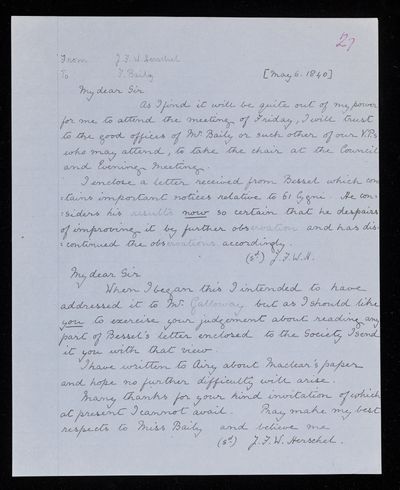 27
From J. F. W. Herschel
To F. Baily
[May 6. 1840]
My dear Sir
As I find it will be quite out of my power
for me to attend the meeting of Friday, I will trust
to the good offices of Mr. Baily or such other of our V.P.s
who may attend, to take the chair at the Council
and Evening Meeting.
I enclose a letter received from Bessel which con
:tains important notices relative to 61 Cygni. He con:
:siders his results now so certain that he despairs
of improving it by further observation and has dis:
:continued the observations accordingly.
(sd) J. F. W. H.
My dear Sir
When I began this I intended to have
addressed it to Mr. Galloway but as I should like
you to exercise your judgement about reading any
part of Bessel's letter enclosed to the Society I send
it you with that view.
I have written to Airy about Maclear's paper
and hope no further difficulty will arise.
Many thanks for your kind invitation of which
at present I cannot avail. Pray make my best
respects to Miss Baily and believe me
(sd) J. F. W. Herschel.